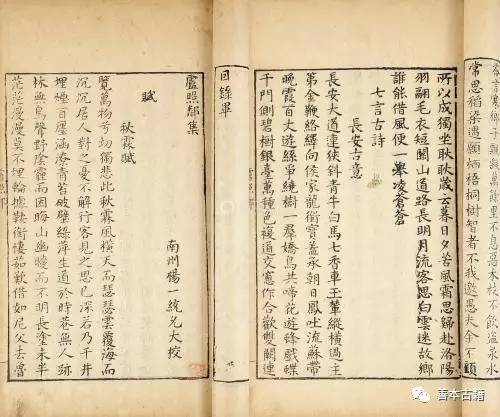 答言寒鄉子飄颻萬餘里不息惡木枝不飲盜泉水
常思稻粱遇願栖梧桐樹智者不我邀愚夫余不顧
所以成獨坐耿耿歲云暮日夕苦風霜思歸赴洛陽
羽翮毛衣短關山道路長明月流客思白雲迷故鄉
誰能借風便一舉凌蒼蒼
七言古詩
長安古意
長安大道連狹斜青牛白馬七香車玉輦縱橫過主
第金鞭絡繹向侯家龍銜寶蓋承朝日鳳吐流蘇帶
晚霞百丈遊絲爭繞樹一羣嬌鳥共啼花遊蜂戲蝶
千門側碧樹銀臺萬種色複道交窻作合歡雙闕連
目錄畢
盧照鄰集
南州楊一統允大校
賦
秋霖賦
覽萬物兮切獨悲此秋霖風橫天而瑟瑟雲覆海而
沉沉居人對之憂不解行客見之思已深若乃千井
埋煙百廛涵潦青苔破壁綠萍生道於時巷無人跡
林無鳥聲野陰霾而因晦山幽曖而不明長塗未半
茫茫漫漫莫不埋輪據鞍銜悽茹歎借如尼父去魯
善本古籍